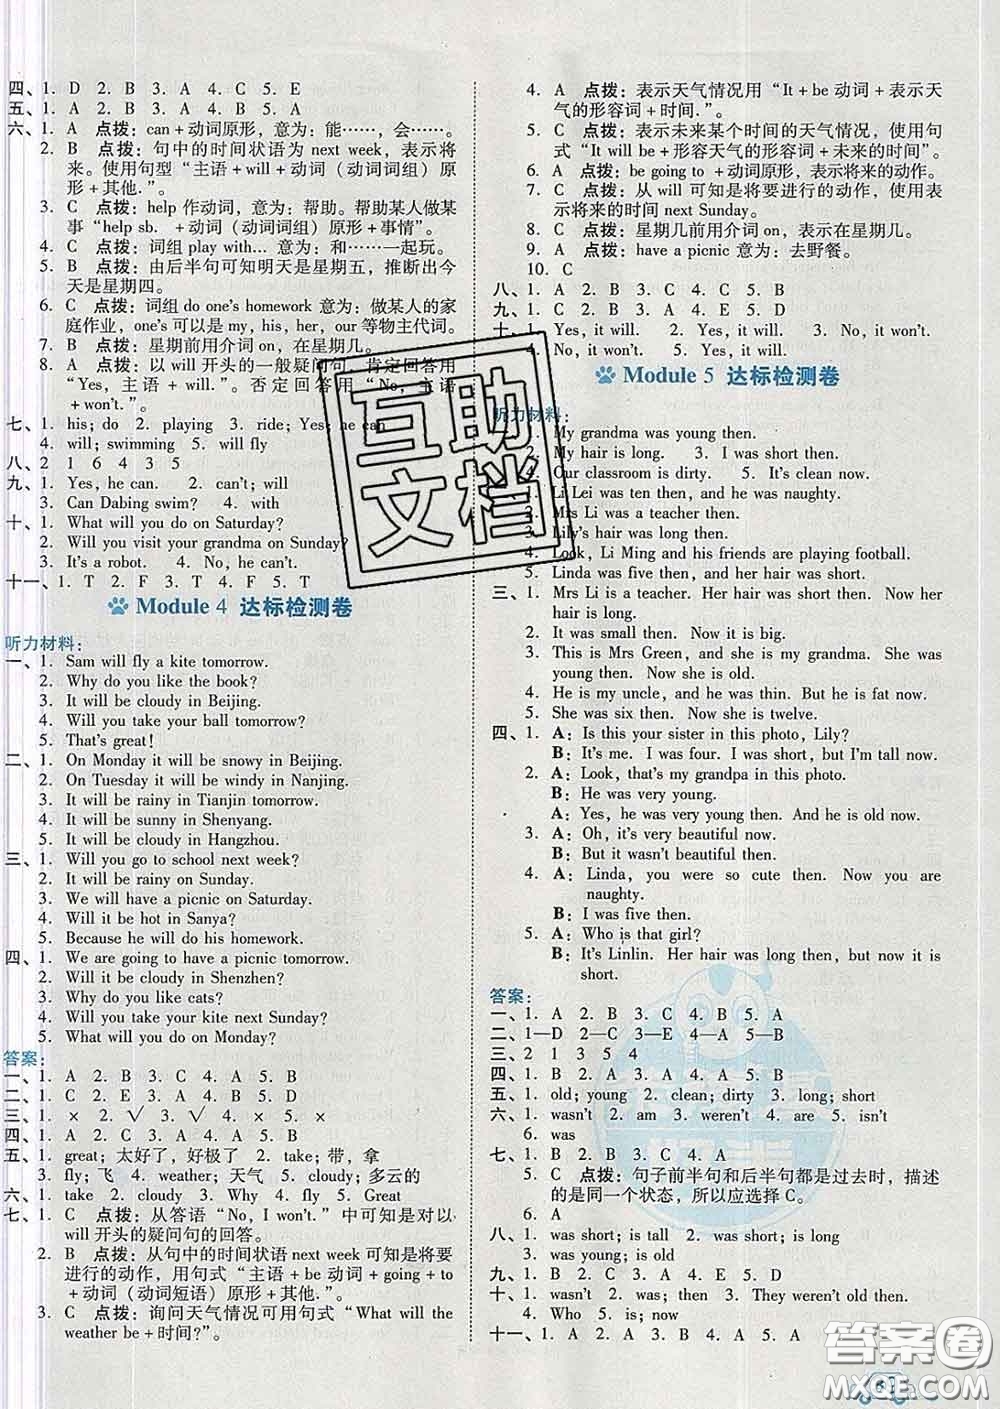 四、1. D  2. B  3. A  4. C  5. E
五、1. A  2. B  3. A  4. B  5. A
六、1. A  点拨：can+动词原形，意为：能……，会……。
2. B  点拨：句中的时间状语为 next week，表示将
来。使用句型“主语+will+动词（动词词组）原
形+其他.”。
3. C  点拨：help 作动词，意为：帮助。帮助某人做某
事“help sb. +动词（动词词组）原形+事情”。
4. C  点拨：词组 play with… 意为：和……一起玩。
5. B  点拨：由后半句可知明天是星期五，推断出今
天是星期四。
6. C  点拨：词组 do one's homework 意为：做某人的家
庭作业，one's 可以是 my, his, her, our 等物主代词。
7. B  点拨：星期前用介词 on，在星期几。
8. A  点拨：以 will 开头的一般疑问句，肯定回答用
“Yes, 主语+will.”。否定回答用“No, 主语
+won't.”。
七、1. his; do  2. playing  3. ride; Yes; he can
4. will; swimming  5. will fly
八、2  1  6  4  3  5
九、1. Yes, he can.  2. can't; will
3. Can Dabing swim?  4. with
十、1. What will you do on Saturday?
2. Will you visit your grandma on Sunday?
3. It's a robot.  4. No, he can't.
十一、1. T  2. F  3. T  4. T  5. F
Module 4 达标检测卷
听力材料：
一、1. Sam will fly a kite tomorrow.
2. Why do you like the book?
3. It will be cloudy in Beijing.
4. Will you take your ball tomorrow?
5. That's great!
二、1. On Monday it will be snowy in Beijing.
2. On Tuesday it will be windy in Nanjing.
3. It will be rainy in Tianjin tomorrow.
4. It will be sunny in Shenyang.
5. It will be cloudy in Hangzhou.
三、1. Will you go to school next week?
2. It will be rainy on Sunday.
3. We will have a picnic on Saturday.
4. Will it be hot in Sanya?
5. Because he will do his homework.
四、1. We are going to have a picnic tomorrow.
2. Will it be cloudy in Shenzhen?
3. Why do you like cats?
4. Will you take your kite next Sunday?
5. What will you do on Monday?
答案：
一、1. A  2. B  3. C  4. A  5. B
二、1. C  2. E  3. A  4. B  5. D
三、1. ×  2. √  3. √  4. √  5. ×
四、1. A  2. C  3. B  4. A  5. B
五、1. great; 太好了，好极了  2. take; 带，拿
3. fly; 飞  4. weather; 天气  5. cloudy; 多云的
六、1. take  2. cloudy  3. Why  4. fly  5. Great
七、1. C  点拨：从答语“No, I won't.”中可知是对以
will 开头的疑问句的回答。
2. B  点拨：从句中的时间状语 next week 可知是将要
进行的动作，用句式“主语+be 动词+going+to
+动词（动词短语）原形+其他.”。
3. C  点拨：询问天气情况可用句式“What will the
weather be+时间?”。
4. A  点拨：表示天气情况用“It+be 动词+表示天
气的形容词+时间.”。
5. C  点拨：表示未来某个时间的天气情况，使用句
式“It will be+形容天气的形容词+未来的时间”。
6. A  点拨：be going to+动词原形，表示将来的动作。
7. C  点拨：从 will 可知是将要进行的动作，使用表
示将来的时间 next Sunday。
8. C  点拨：星期几前用介词 on，表示在星期几。
9. A  点拨：have a picnic 意为：去野餐。
10. C
八、1. A  2. B  3. C  4. C  5. B
九、1. C  2. B  3. A  4. E  5. D
十、1. Yes, it will.  2. Yes, it will.  3. No, it won't.
4. No, it won't.  5. Yes, it will.
Module 5 达标检测卷
听力材料：
一、1. My grandma was young then.
2. My hair is long.  3. I was short then.
4. Our classroom is dirty.  5. It's clean now.
二、1. Li Lei was ten then, and he was naughty.
2. Mrs Li was a teacher then.
3. Lily's hair was long then.
4. Look, Li Ming and his friends are playing football.
5. Linda was five then, and her hair was short.
三、1. Mrs Li is a teacher. Her hair was short then. Now
her hair is long.
2. It was small then. Now it is big.
3. This is Mrs Green, and she is my grandma. She was
young then. Now she is old.
4. He is my uncle, and he was thin. But he is fat now.
5. She was six then. Now she is twelve.
四、1. A: Is this your sister in this photo, Lily?
B: It's me. I was four. I was short, but I'm tall now.
2. A: Look, that's my grandpa in this photo.
B: He was very young.
A: Yes, he was very young then. And he is old now.
3. A: Oh, it's very beautiful now.
B: But it wasn't beautiful then.
4. A: Linda, you were so cute then. Now you are
naughty.
B: I was five then.
5. A: Who is that girl?
B: It's Linlin. Her hair was long then, but now it is
short.
答案：
一、1. A  2. B  3. C  4. B  5. A
二、1—D  2—C  3—E  4—A  5—B
三、2  1  3  5  4
四、1. B  2. A  3. B  4. A  5. B
五、1. old; young  2. clean; dirty  3. long; short
六、1. wasn't  2. am  3. weren't  4. are  5. isn't
6. was
七、1. B  2. B  3. C  4. A
5. C  点拨：句子前半句和后半句都是过去时，描述
的是同一个状态，所以应选择 C。
6. A
八、1. was short; is tall  2. was short; is long
3. was young; is old
九、1. B  2. C  3. A  4. E  5. D
十、1. wasn't  2. was  3. They weren't old then.
4. Who  5. is; now
十一、1. A  2. A  3. A  4. A  5. A
互助
文档
答案圈
MXQE.COM